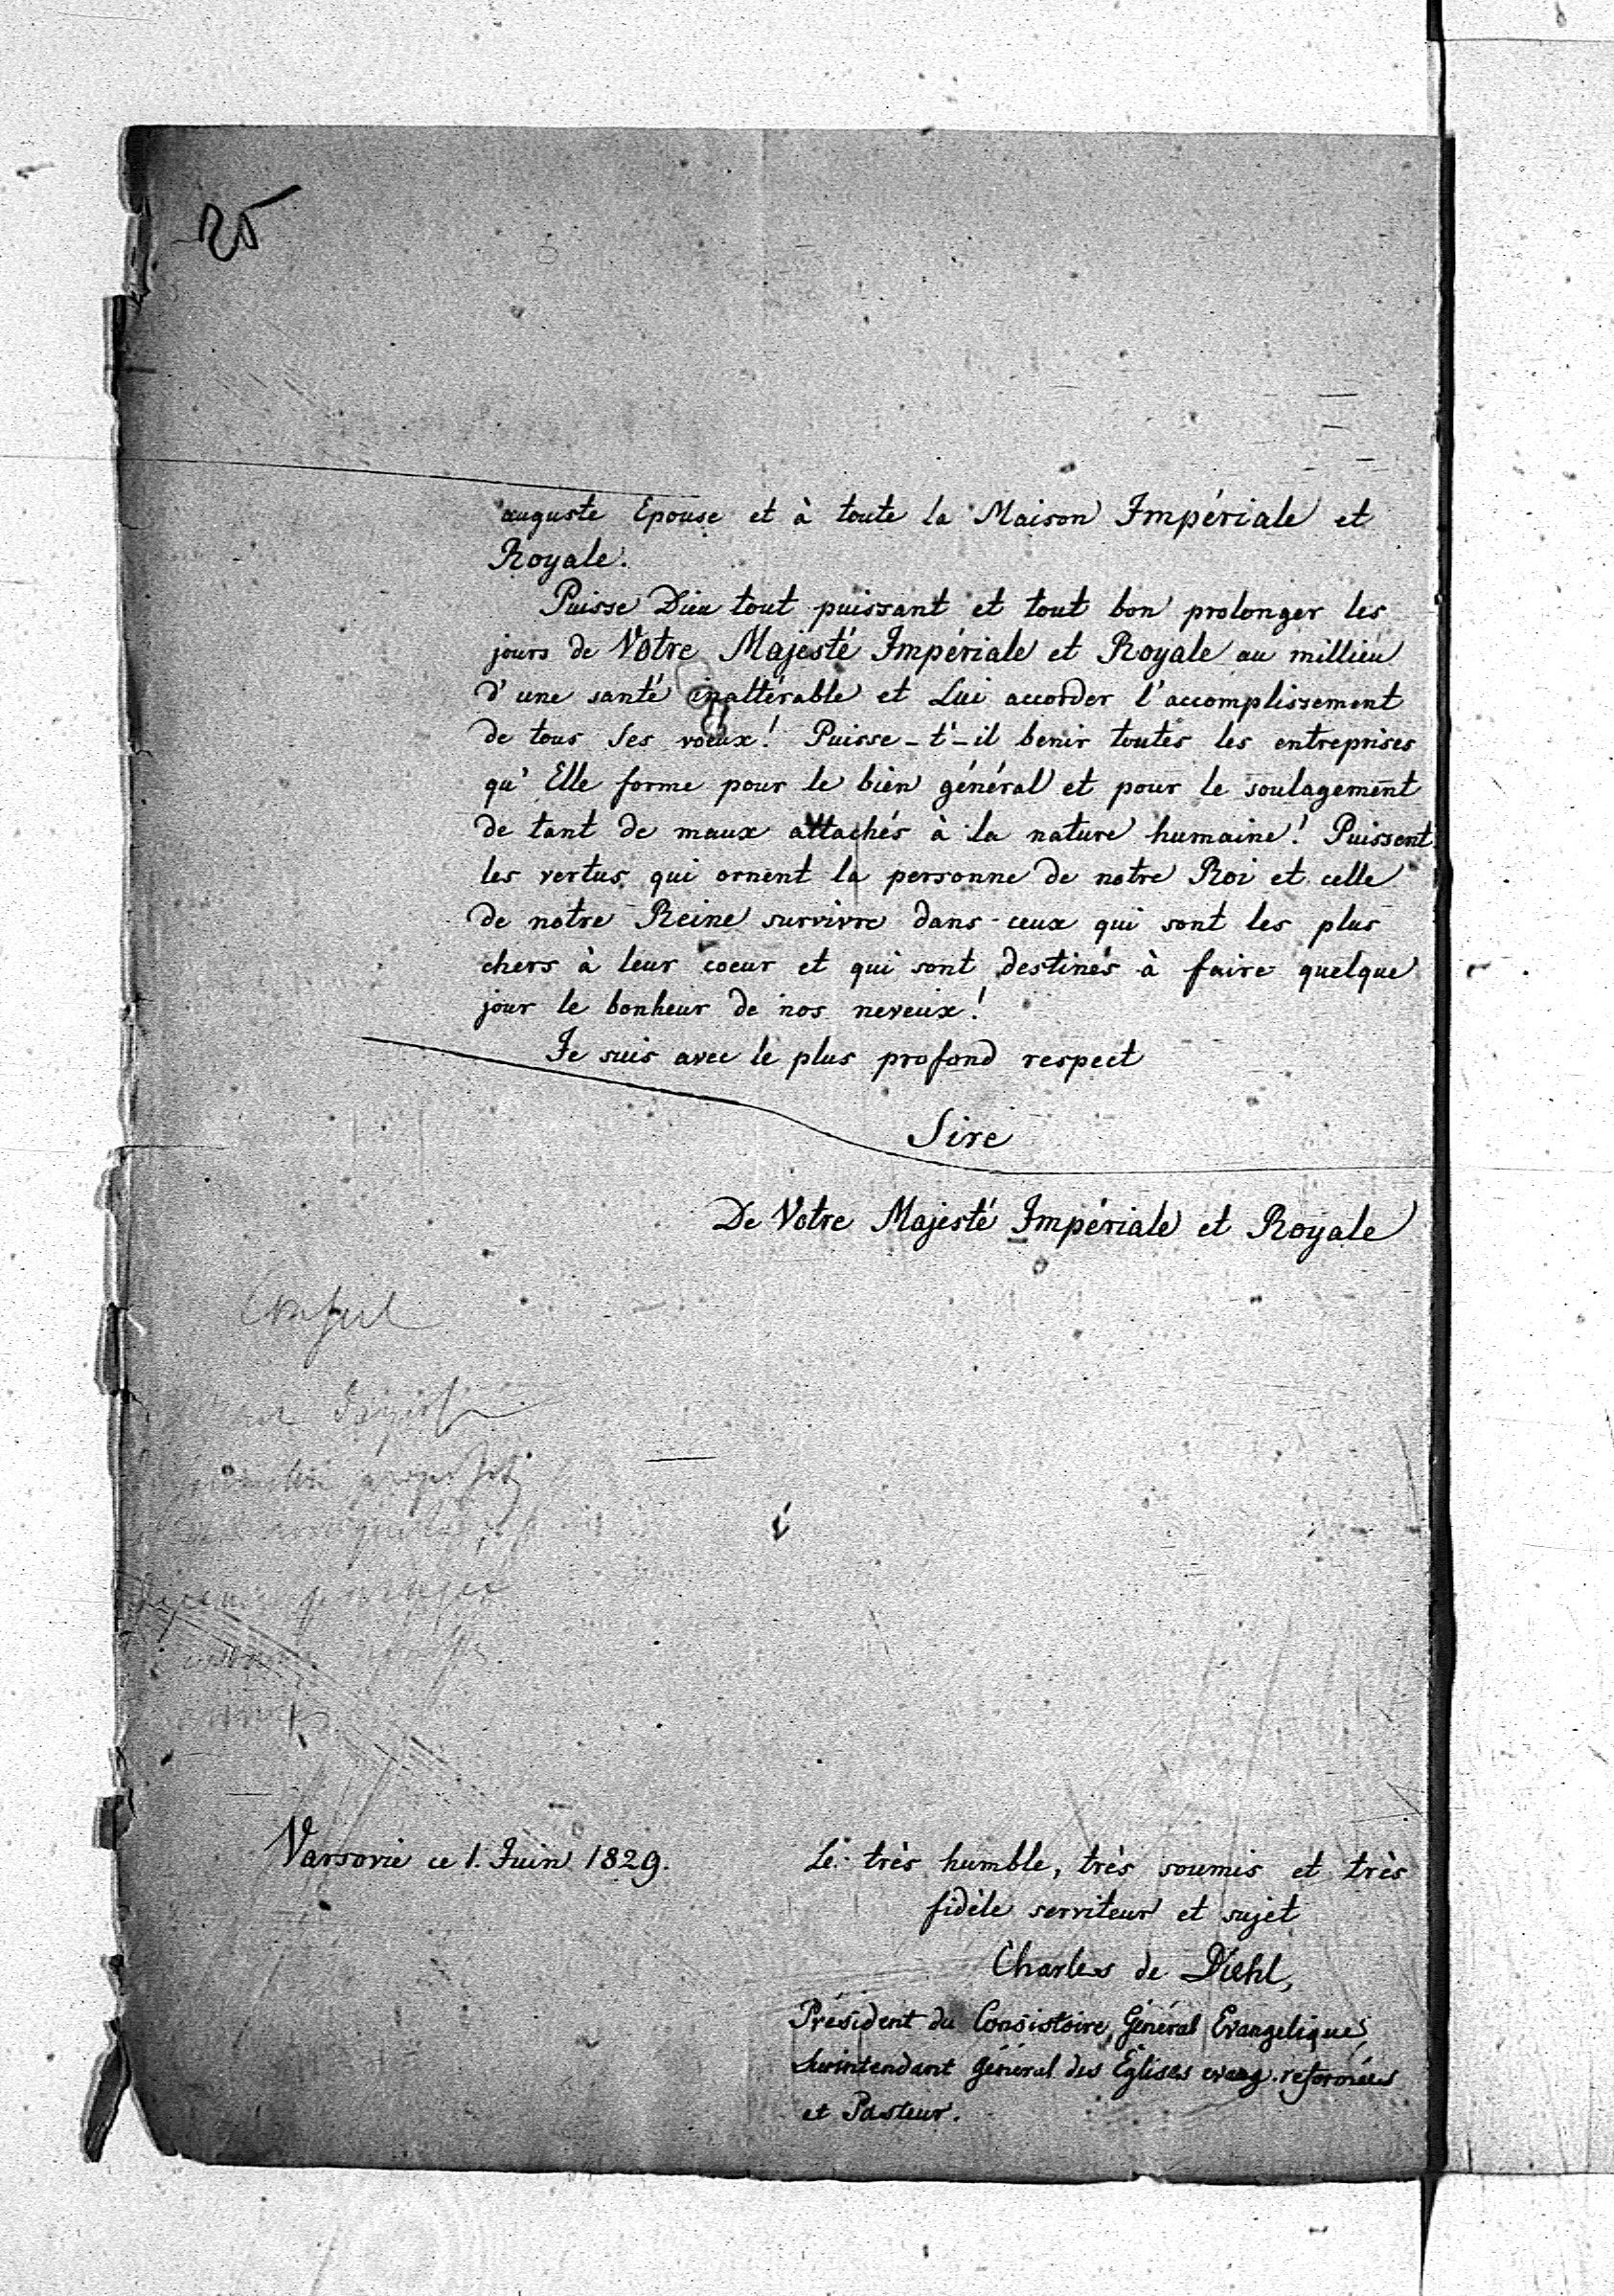 25
auguste Epouse et à toute la Maison Impériale et
Royale.
Puisse Dieu tout puissant et tout bon prolonger les
jours de Votre Majesté Impériale et Royale au millieu
d'une santé inaltérable et Lui accorder l'accomplissement
de tous Ses voeux! Puisse-t'-il benir toutes les entreprises
qu'Elle forme pour le bien général et pour le soulagement
de tant de maux attachés à la nature humaine! Puissent
les vertus qui ornent la personne de notre Roi et celle
de notre Reine survivre dans ceux qui sont les plus
chers à leur coeur et qui sont destinés à faire quelque
jour le bonheur de nos neveux!
Je suis avec le plus profond respect
Sire
De Votre Majesté Impériale et Royale
Varsovie ce 1. Juin 1829.
Le très humble, très soumis et très
fidèle serviteur et sujet
Charles de Diehl,
Président du Consistoire Général Evangelique,
Surintendant général des Eglises evang. reformées
et Pasteur.